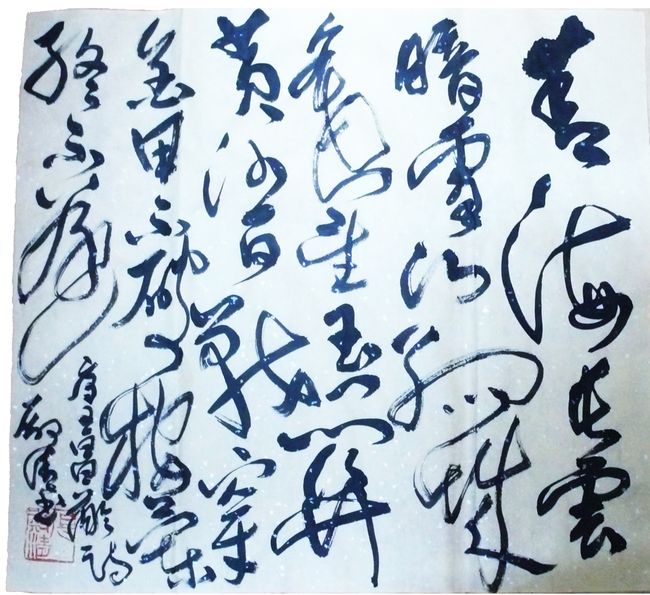 青海長雲
暗雪山孤城
遙望玉門關
黃沙百戰穿
金甲不破樓蘭
終不還
唐王昌齡詩
清書